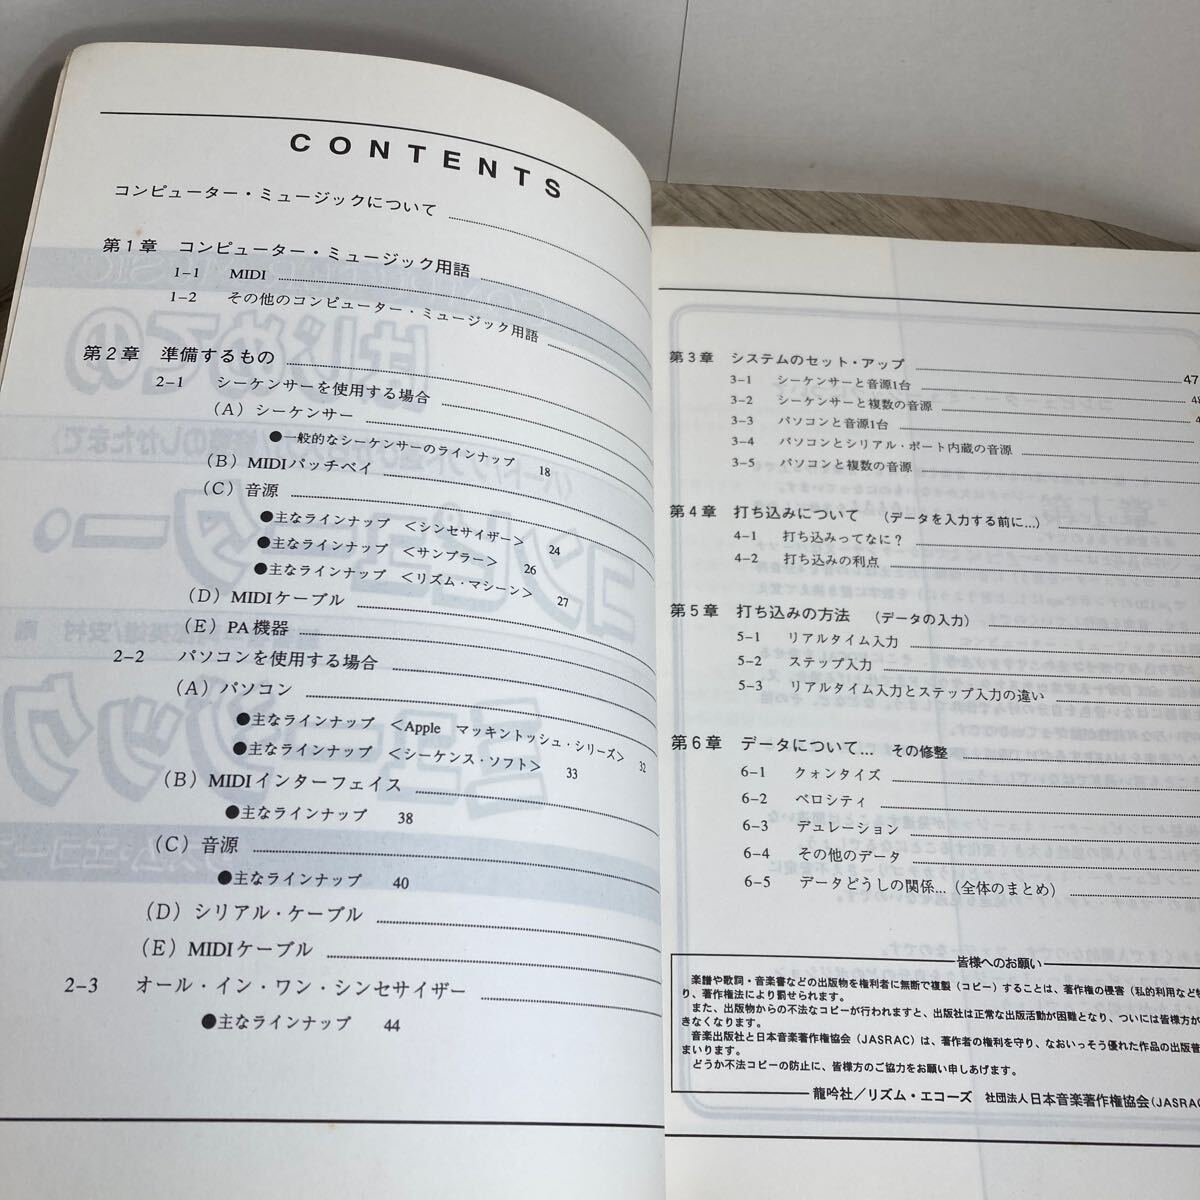 CONTENTS
コンピューター・ミュージックについて
第1章 コンピューター・ミュージック用語
1-1 MIDI
1-2 その他のコンピューター・ミュージック用語
第2章 準備するもの
2-1 シーケンサーを使用する場合
(A) シーケンサー
●一般的なシーケンサーのラインナップ 18
(B) MIDIパッチベイ
(C) 音源
●主なラインナップ <シンセサイザー> 24
●主なラインナップ <サンプラー> 26
●主なラインナップ <リズム・マシーン> 27
(D) MIDIケーブル
(E) PA機器
2-2 パソコンを使用する場合
(A) パソコン
●主なラインナップ <Apple マッキントッシュ・シリーズ> 32
●主なラインナップ <シーケンス・ソフト> 33
(B) MIDIインターフェイス
●主なラインナップ 38
(C) 音源
●主なラインナップ 40
(D) シリアル・ケーブル
(E) MIDIケーブル
2-3 オール・イン・ワン・シンセサイザー
●主なラインナップ 44
第3章 システムのセット・アップ 47
3-1 シーケンサーと音源1台 48
3-2 シーケンサーと複数の音源
3-3 パソコンと音源1台
3-4 パソコンとシリアル・ポート内蔵の音源
3-5 パソコンと複数の音源
第4章 打ち込みについて (データを入力する前に…)
4-1 打ち込みってなに?
4-2 打ち込みの利点
第5章 打ち込みの方法 (データの入力)
5-1 リアルタイム入力
5-2 ステップ入力
5-3 リアルタイム入力とステップ入力の違い
第6章 データについて… その修整
6-1 クォンタイズ
6-2 ベロシティ
6-3 デュレーション
6-4 その他のデータ
6-5 データどうしの関係…(全体のまとめ)
皆様へのお願い
楽譜や歌詞・音楽書などの出版物を権利者に無断で複製(コピー)することは、著作権の侵害(私的利用など特
り、著作権法により罰せられます。
また、出版物からの不法なコピーが行われますと、出版社は正常な出版活動が困難となり、ついには皆様方が
きなくなります。
音楽出版社と日本音楽著作権協会(JASRAC)は、著作者の権利を守り、なおいっそう優れた作品の出版普
まいります。
どうか不法コピーの防止に、皆様方のご協力をお願い申しあげます。
龍吟社/リズム・エコーズ 社団法人日本音楽著作権協会(JASRAC